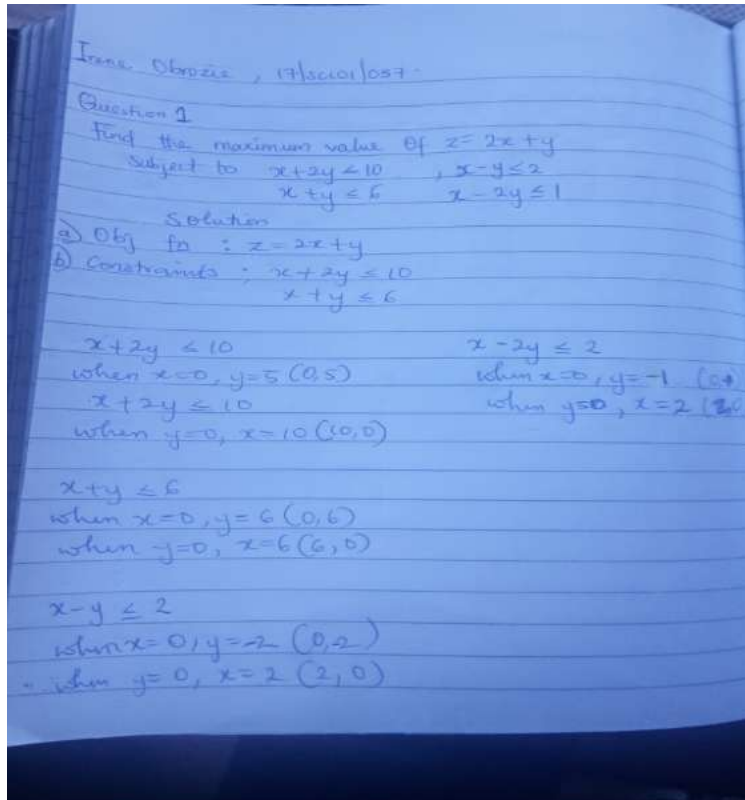 Irene Obrozie, 17/sci01/057.
Question 1
Find the maximum value of z = 2x + y
Subject to x + 2y ≤ 10 , x - y ≤ 2
x + y ≤ 6 x - 2y ≤ 1
Solution
a) Obj fn : z = 2x + y
b) Constraints : x + 2y ≤ 10
x + y ≤ 6
x + 2y ≤ 10
when x=0, y=5 (0,5)
x + 2y ≤ 10
when y=0, x=10 (10,0)
x - 2y ≤ 2
when x=0, y=-1
when y=0, x=2
x + y ≤ 6
when x=0, y=6 (0,6)
when y=0, x=6 (6,0)
x - y ≤ 2
when x=0, y=-2 (0,-2)
when y=0, x=2 (2,0)